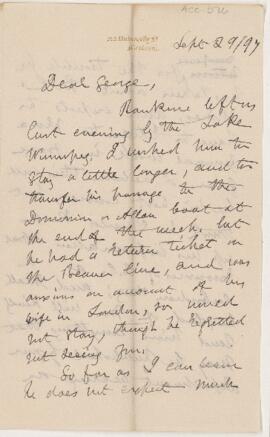 ACC-526
293 University St
Montreal.
Sept 29/97
Dear George,
Rankine left us
last evening by the Lake
Winnipeg. I wished him to
stay a little longer, and to
transfer his passage to the
Dominion or Allan boat at
the end of the week, but
he had a return ticket on
the Beaver line, and was
anxious on account of his
wife in London, so would
not stay, though he regretted
not seeing you.
So far as I can learn
he does not expect much